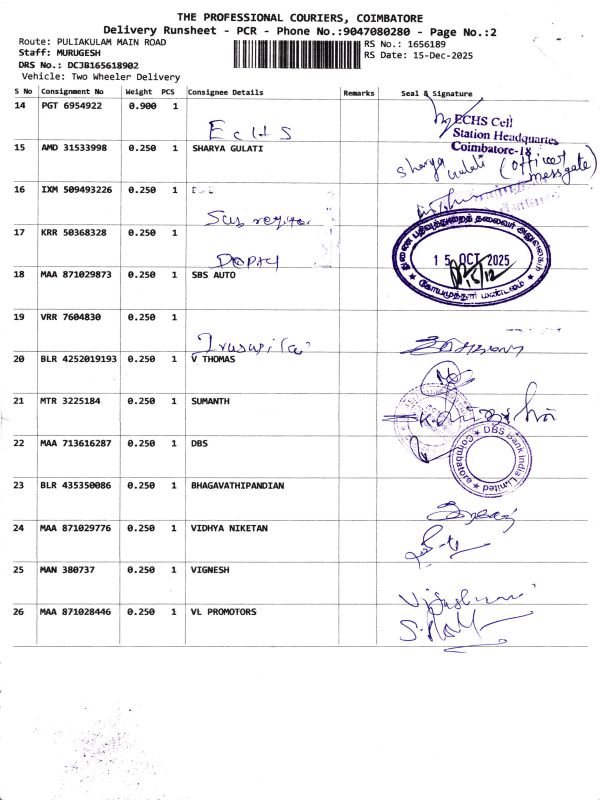 THE PROFESSIONAL COURIERS, COIMBATORE
Delivery Runsheet - PCR - Phone No.:9047080280 - Page No.:2
Route: PULIAKULAM MAIN ROAD
RS No.: 1656189
Staff: MURUGESH
RS Date: 15-Dec-2025
DRS No.: DCJB165618902
Vehicle: Two Wheeler Delivery
S No Consignment No Weight PCS Consignee Details Remarks Seal & Signature
14 PGT 6954922 0.900 1
ECHS
ECHS Cell
Station Headquarters
Coimbatore-18
15 AMD 31533998 0.250 1 SHARYA GULATI
Sharya Gulati (officer mess gate)
16 IXM 509493226 0.250 1
17 KRR 50368328 0.250 1
15 OCT 2025
15/12
கோயமுத்தூர் மண்டலம்
18 MAA 871029873 0.250 1 SBS AUTO
19 VRR 7604830 0.250 1
20 BLR 4252019193 0.250 1 V THOMAS
21 MTR 3225184 0.250 1 SUMANTH
22 MAA 713616287 0.250 1 DBS
DBS Bank India Limited
Coimbatore
23 BLR 435350086 0.250 1 BHAGAVATHIPANDIAN
24 MAA 871029776 0.250 1 VIDHYA NIKETAN
25 MAN 380737 0.250 1 VIGNESH
26 MAA 871028446 0.250 1 VL PROMOTORS